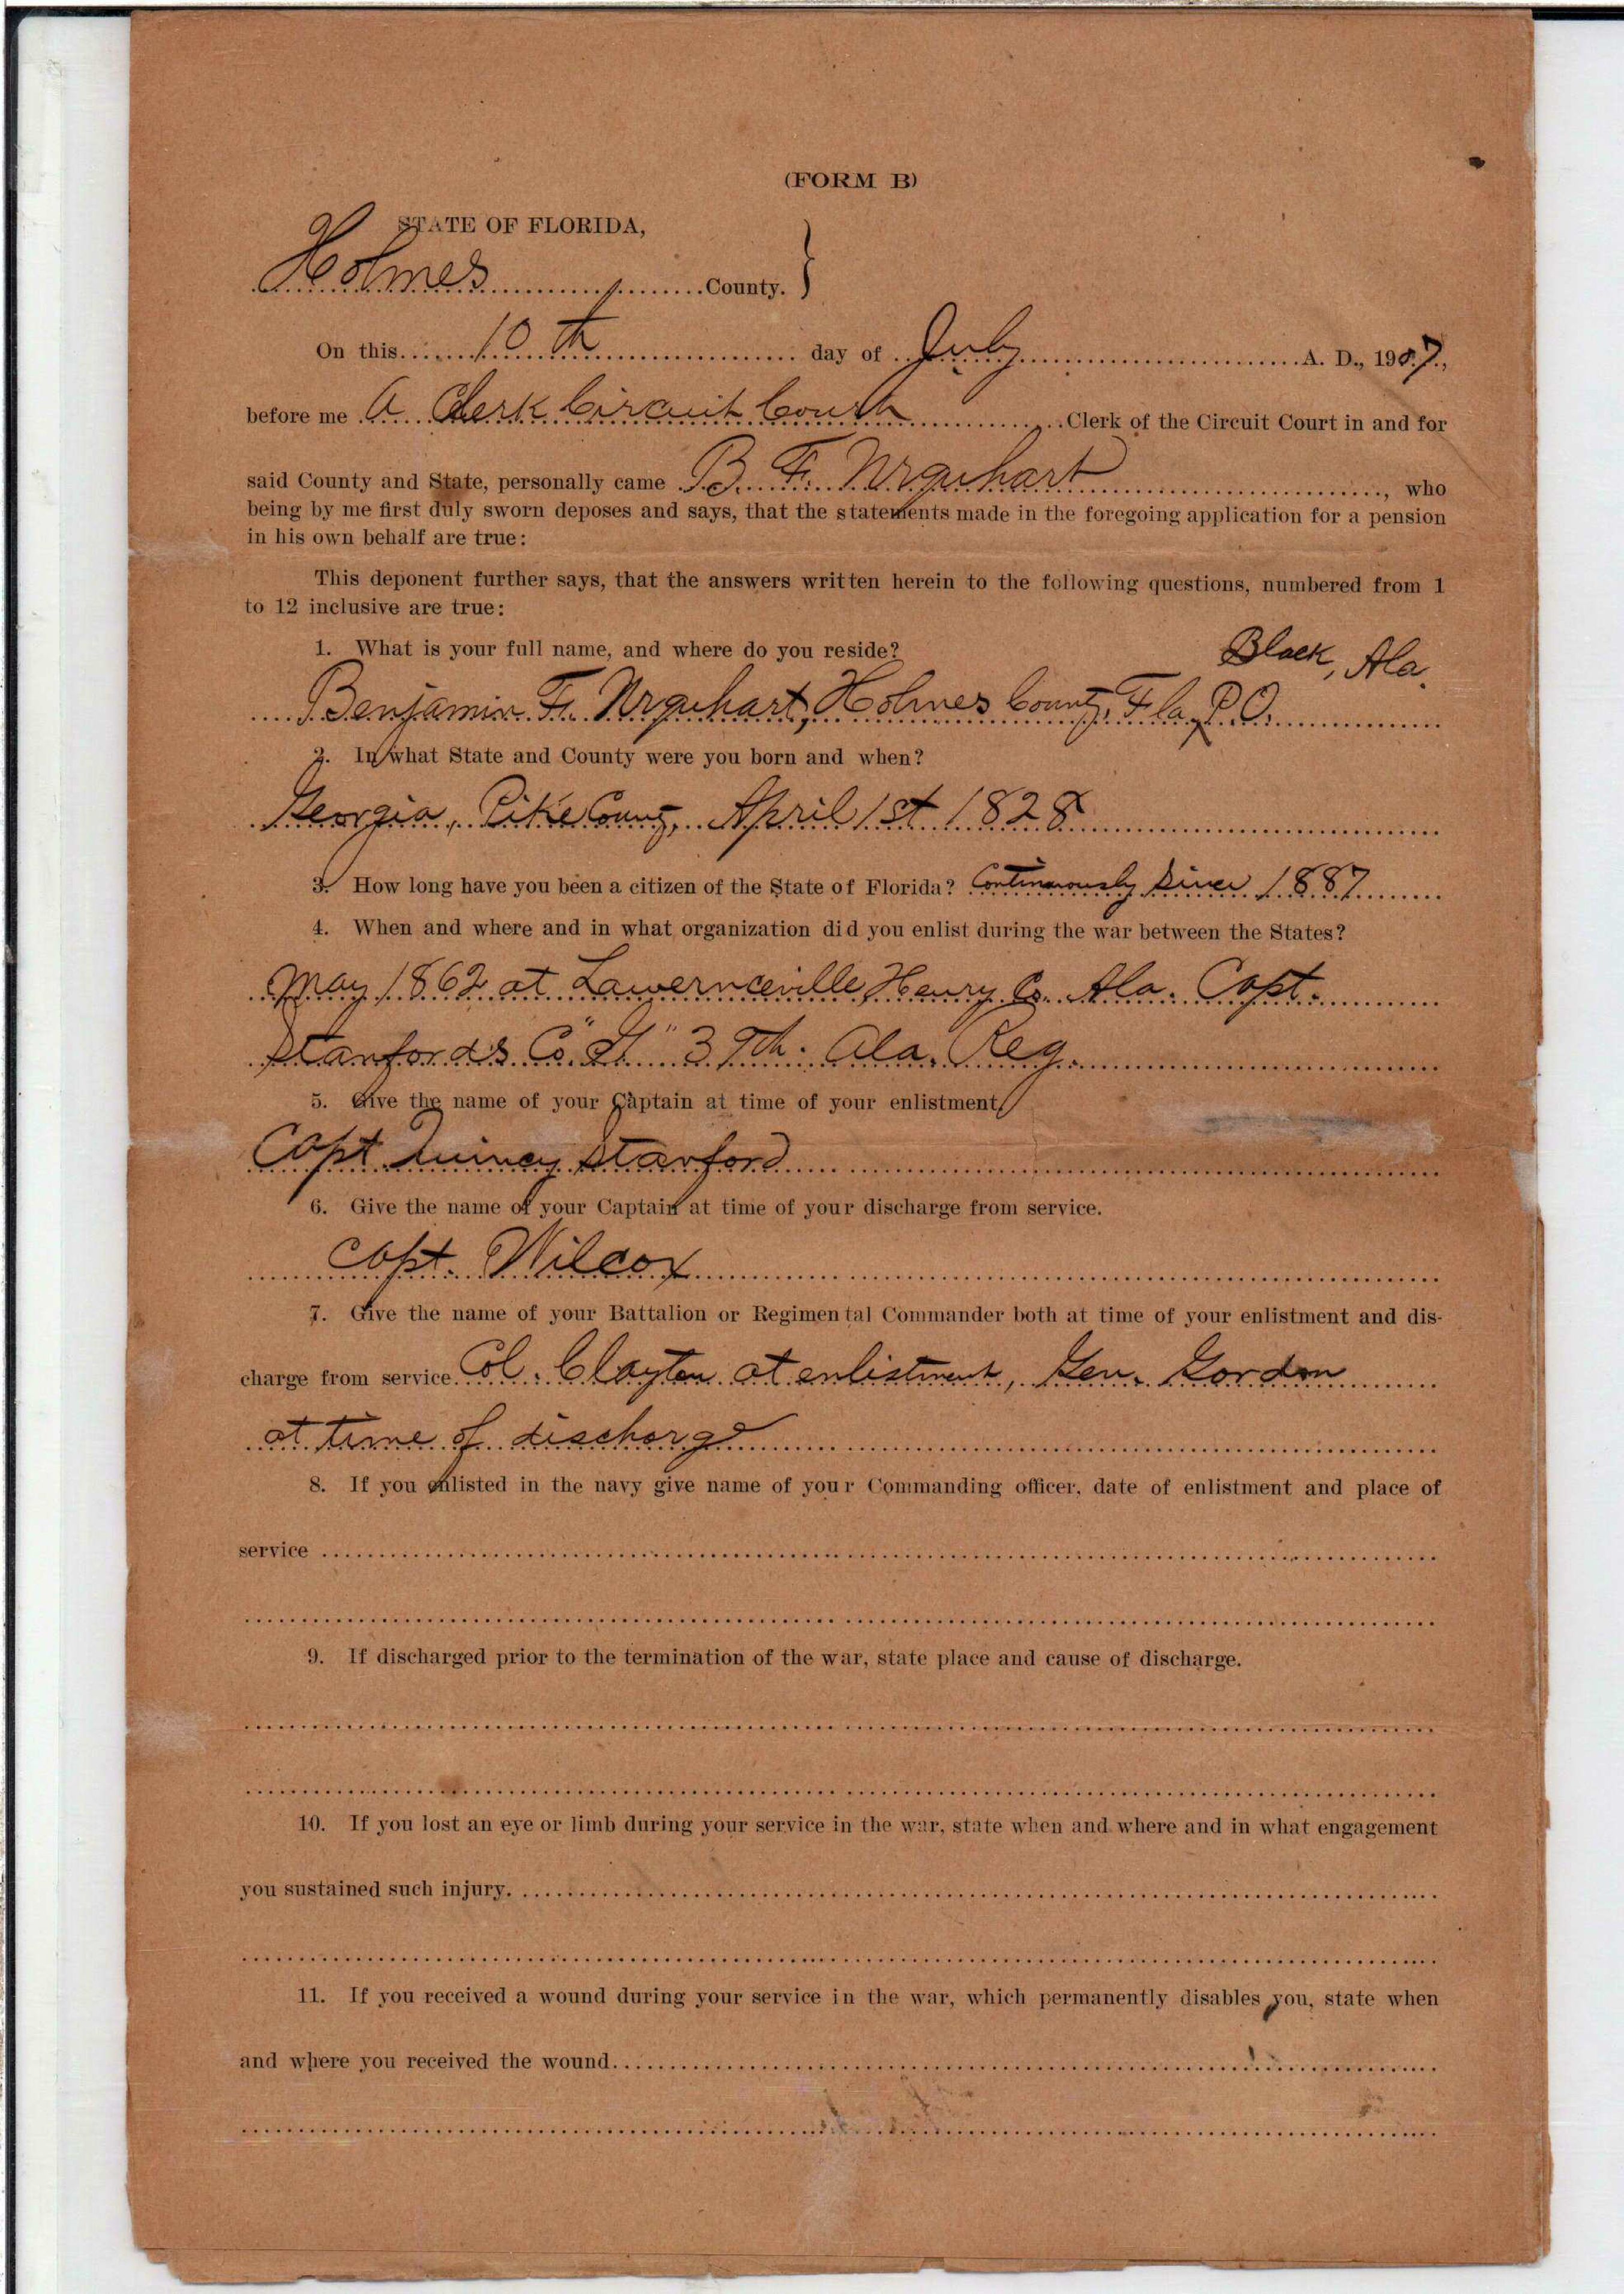 (FORM B)
STATE OF FLORIDA,
Holmes County.
On this 10th day of July A. D., 1907,
before me A Clerk Circuit Court Clerk of the Circuit Court in and for
said County and State, personally came B. F. Urquhart, who
being by me first duly sworn deposes and says, that the statements made in the foregoing application for a pension
in his own behalf are true:
This deponent further says, that the answers written herein to the following questions, numbered from 1
to 12 inclusive are true:
1. What is your full name, and where do you reside?
Black, Ala.
Benjamin F. Urquhart, Holmes County, Fla, P.O.
2. In what State and County were you born and when?
Georgia, Pike County, April 1st 1828
3. How long have you been a citizen of the State of Florida? Continuously Since 1887
4. When and where and in what organization did you enlist during the war between the States?
May 1862 at Lawernceville, Henry Co. Ala. Capt.
Stanford's Co. 39th. Ala. Reg.
5. Give the name of your Captain at time of your enlistment,
Capt Stanford
6. Give the name of your Captain at time of your discharge from service.
Capt. Wilcox
7. Give the name of your Battalion or Regimental Commander both at time of your enlistment and dis-
charge from service. Col. Clayton at enlistment, Gen. Gordon
at time of discharge
8. If you enlisted in the navy give name of your Commanding officer, date of enlistment and place of
service
9. If discharged prior to the termination of the war, state place and cause of discharge.
10. If you lost an eye or limb during your service in the war, state when and where and in what engagement
you sustained such injury.
11. If you received a wound during your service in the war, which permanently disables you, state when
and where you received the wound.